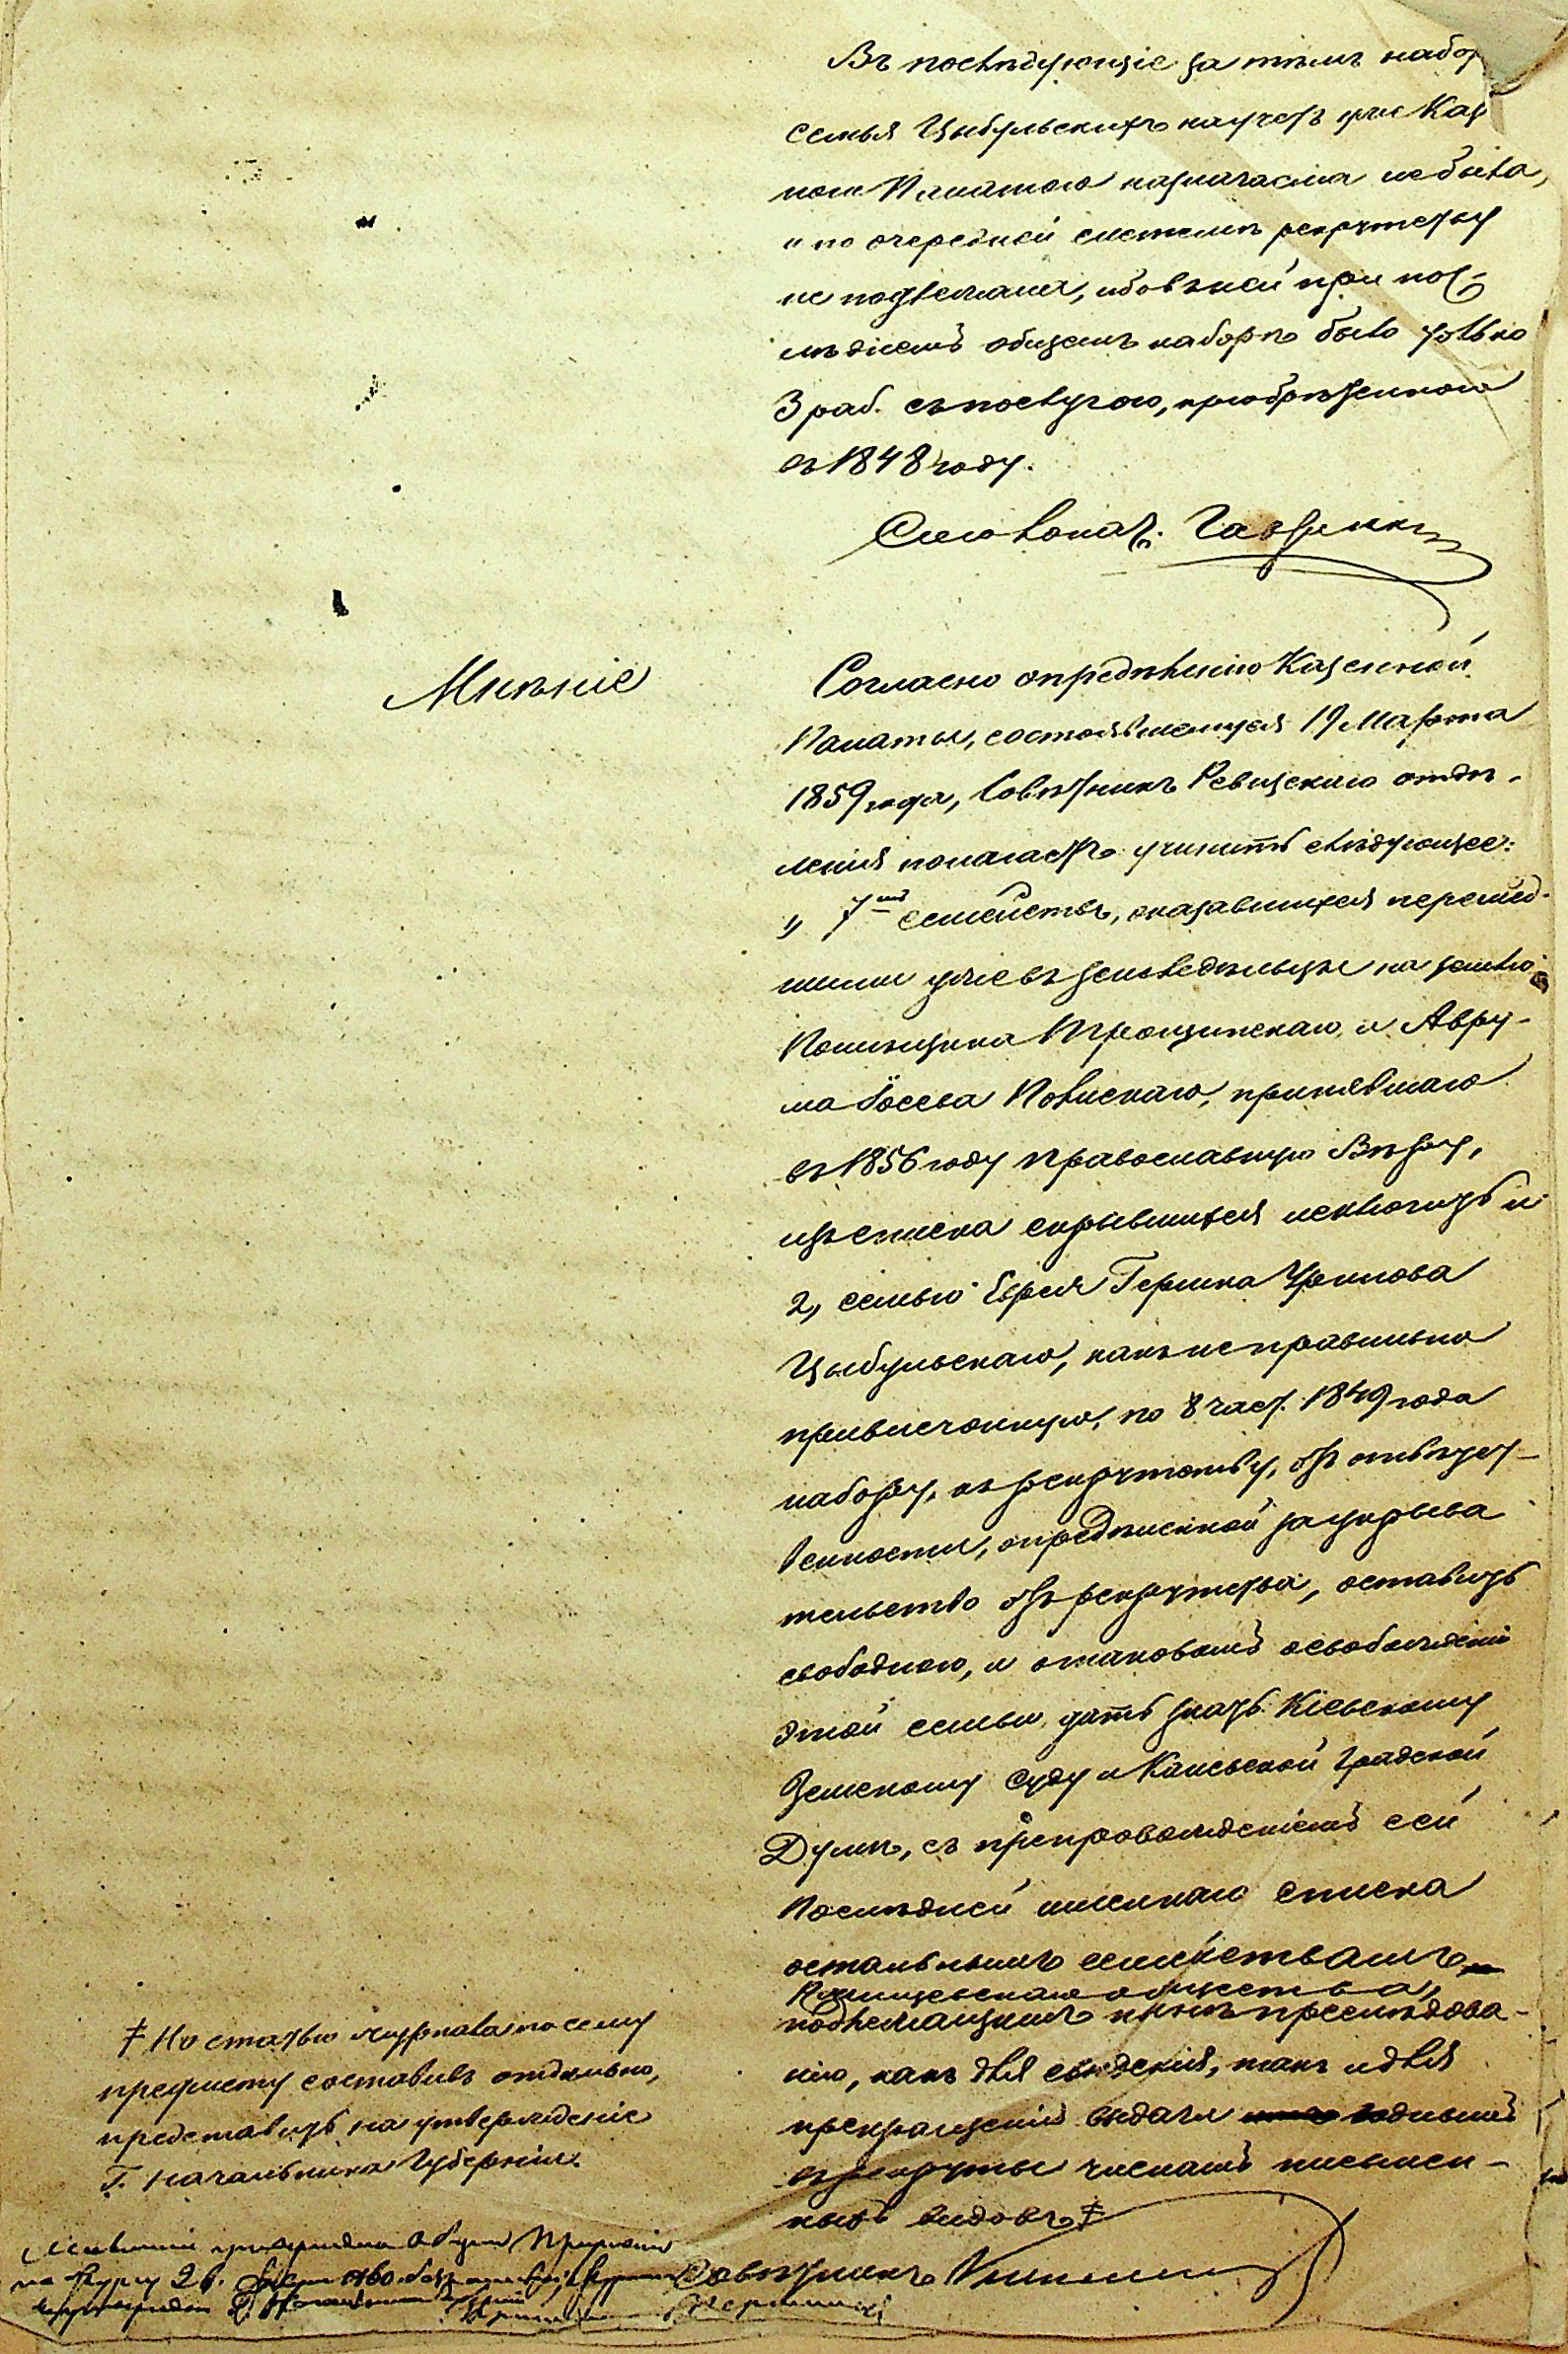 Въ послѣдующіе за тѣмъ набор
семья Цыбульскихъ на учетъ уже Каз
ною Палатою назначаема не была,
и по очередной системѣ рекрутству
не подлежала, ибо въ ней при пос-
лѣднемъ общемъ наборѣ было только
3 раб. съ послугою, пріобрѣтенною
въ 1848 году.
Столонач.
Мнѣніе
Согласно опредѣленію Казенной
Палаты, состоявшемуся 19 Марта
1859 года, Совѣтникъ Ревизскаго отдѣ-
ленія полагаетъ учинить слѣдующее:
1, 7мь семействъ, оказавшихся перешед-
шими уже въ земледѣльцы на землю
Помѣщика Трощинскаго и Авру-
ма Іосева Повискаго, принявшаго
въ 1856 году православную Вѣру,
изъ списка скрывшихся исключить и
2, семью Еврея Гершка
Цыбульскаго, какъ неправильно
привлеченную, по 8 част. 1849 года
набору, къ рекрутству, отъ отвѣтст-
венности, опредѣленной за укрыва
тельство отъ рекрутства, оставить
свободною, и о таковомъ освобожденіи
этой семьи дать знать Кіевскому
Земскому Суду и Каневской Градской
Думѣ, съ препровожденіемъ сей
Послѣдней имяннаго списка
остальнымъ семействамъ
общества,
подлежащимъ нынѣ преслѣдова-
нію, какъ для свѣденія, такъ и для
прекращенія выдачи годнымъ
въ рекруты членамъ письмен-
ныхъ видовъ ‡
‡ Но статью журнала по сему
предмету составивъ отдѣльно,
представить на утвержденіе
Г. Начальника Губерніи.
Совѣтникъ